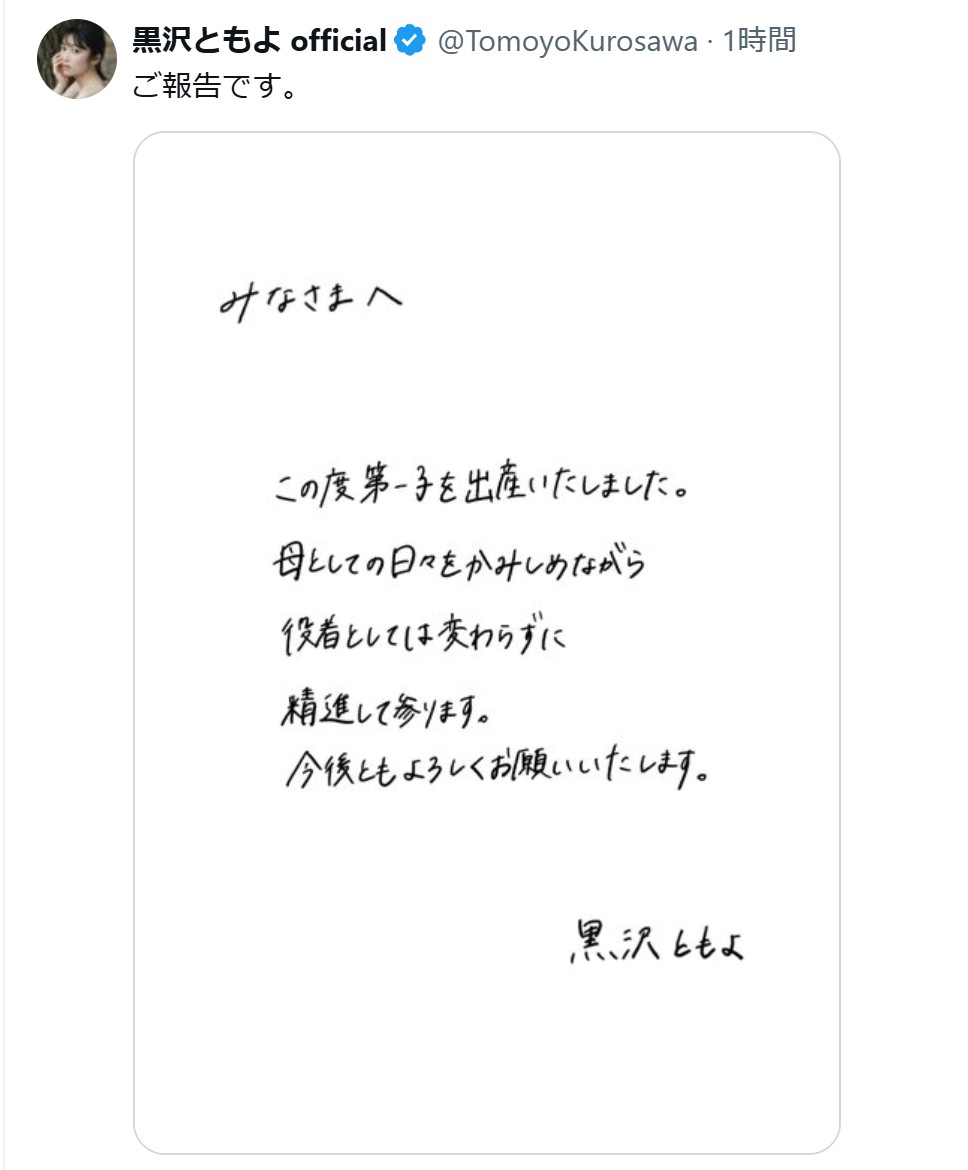 黒沢ともよ official @TomoyoKurosawa · 1時間
ご報告です。
みなさまへ
この度第一子を出産いたしました。
母としての日々をかみしめながら
役者としては変わらずに
精進して参ります。
今後ともよろしくお願いいたします。
黒沢ともよ